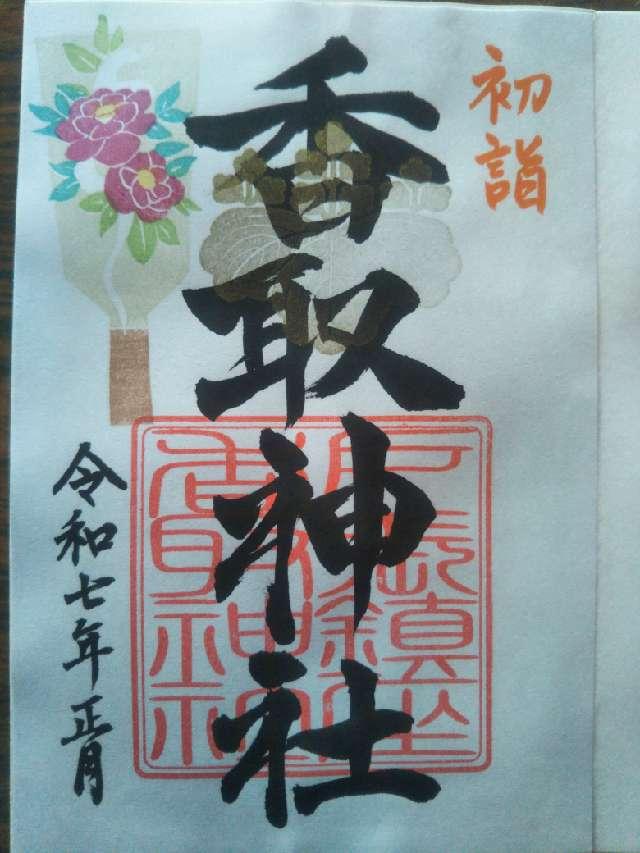 初詣
香取神社
令和七年正月